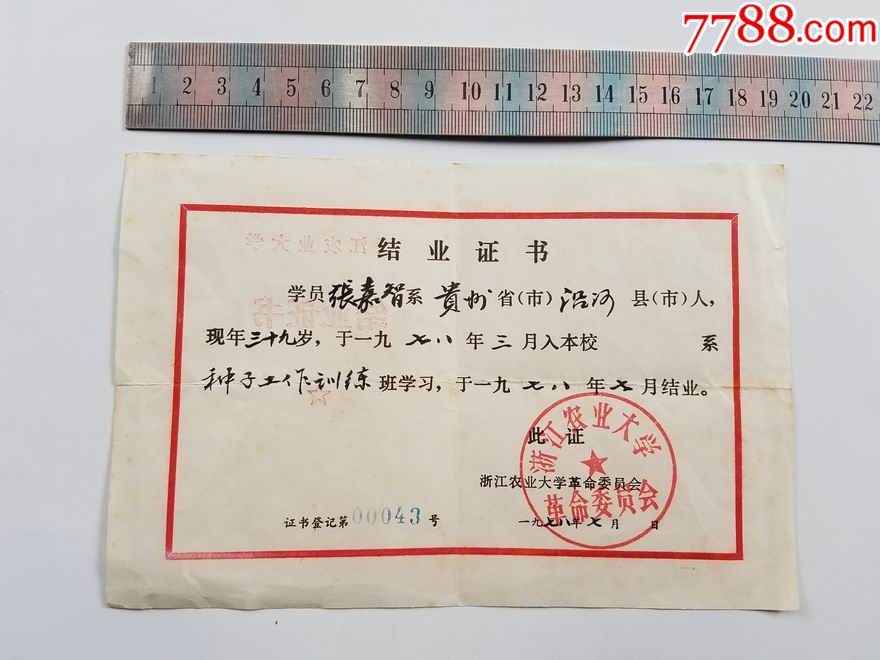 7788.com
1 2 3 4 5 6 7 8 9 10 11 12 13 14 15 16 17 18 19 20 21 22
浙江农业大学
结业证书
结业证书
学员張嘉智系貴州省(市)沿河县(市)人，
现年三十九岁，于一九七八年三月入本校 系
种子工作训练班学习，于一九七八年七月结业。
此证
浙江农业大学革命委员会
浙江农业大学
革命委员会
证书登记第00043号
一九七八年七月 日